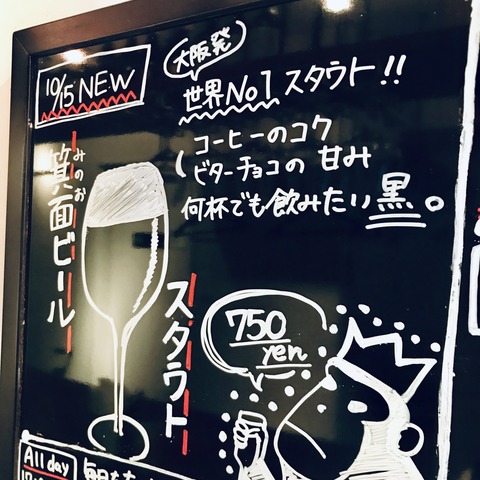 10/15 NEW
大阪発
世界No1 スタウト!!
コーヒーのコク
ビターチョコの 甘み
何杯でも飲みたい黒。
みのお
箕面ビール
スタウト
750
yen
All day